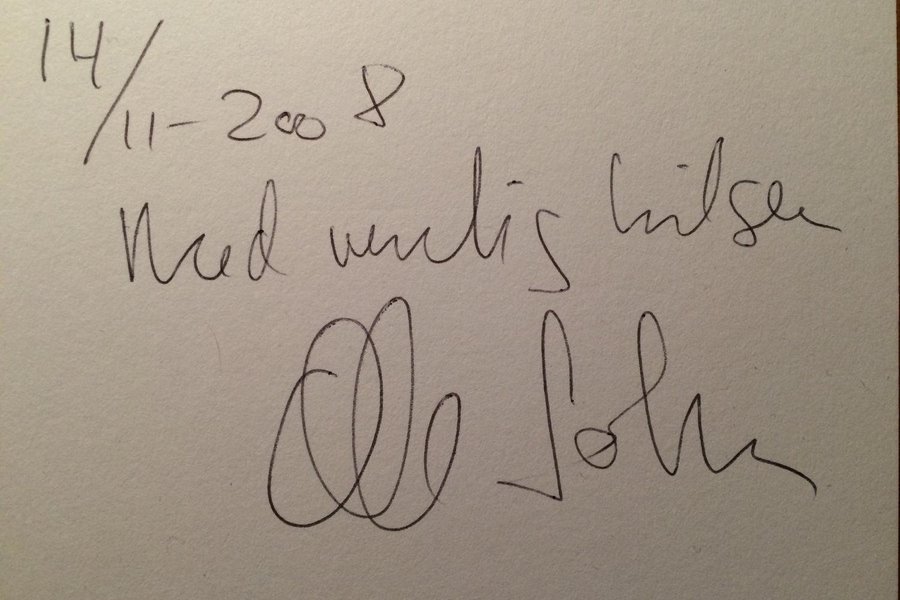 14/11-2008
Med venlig hilsen
Ole